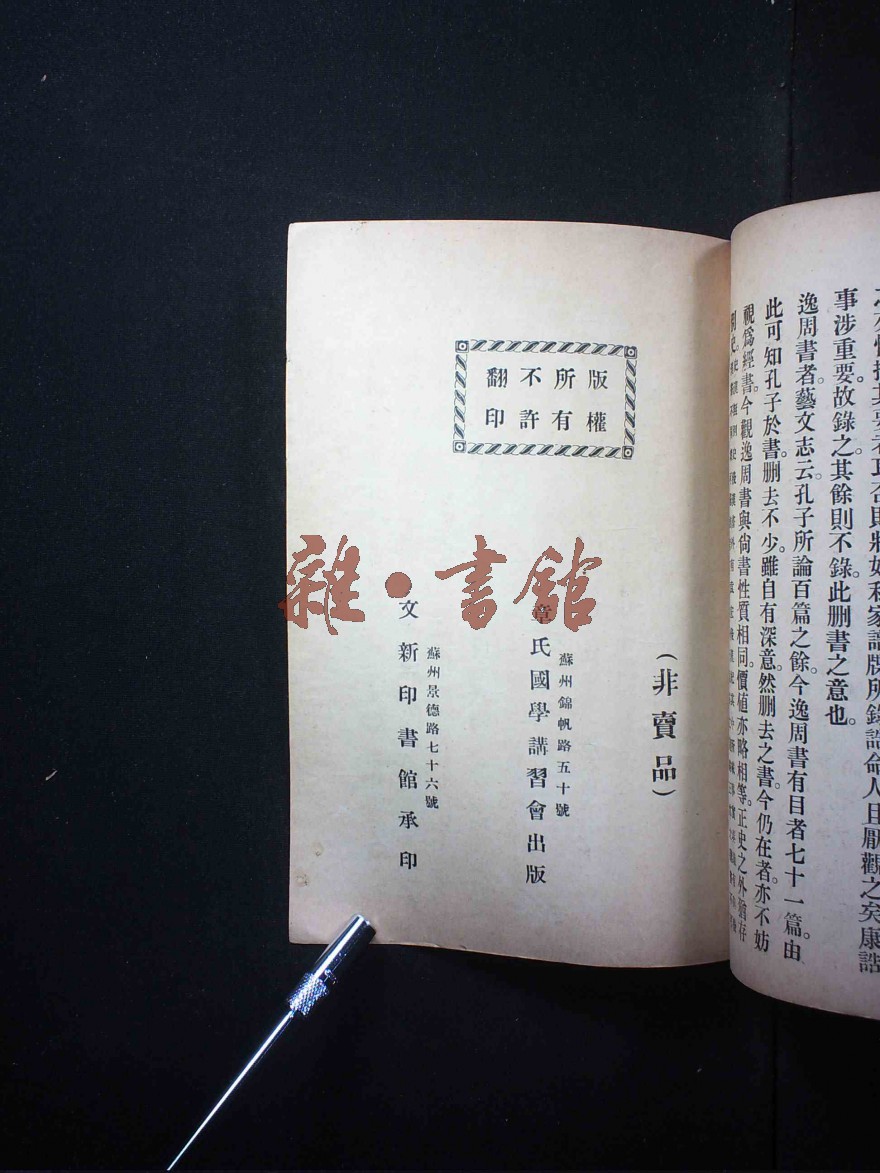 事涉重要。故錄之其餘則不錄。此刪書之意也。
逸周書者。藝文志云孔子所論百篇之餘。今逸周書有目者七十一篇。由
此可知孔子於書刪去不少。雖自有深意。然刪去之書。今仍在者亦不妨
視爲經書。今觀逸周書與尙書性質相同。價值亦略相等。正史之外猶存
版權
所有
不許
翻印
(非賣品)
蘇州錦帆路五十號
章氏國學講習會出版
蘇州景德路七十六號
文新印書館承印
雜·書館